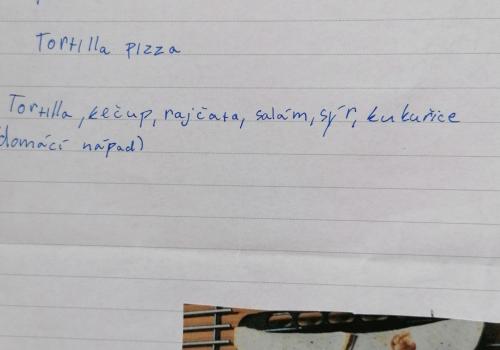 Tortilla pizza
Tortilla, kečup, rajčata, salám, sýr, kukuřice
domácí nápad)